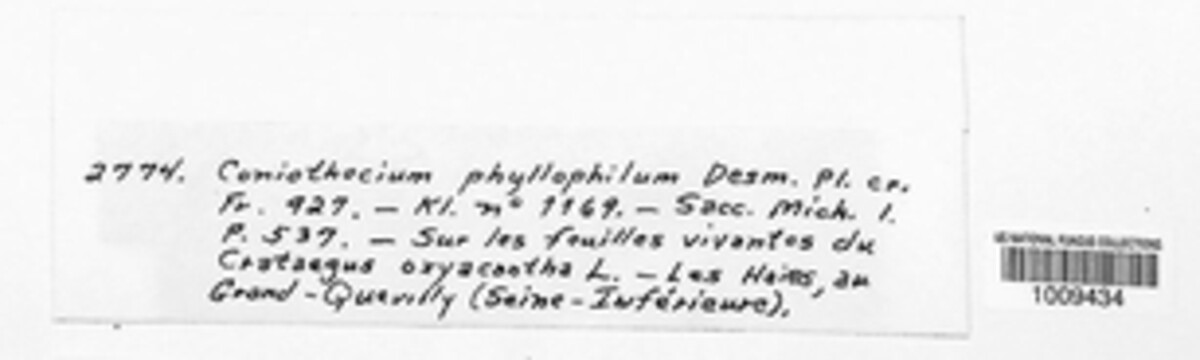 2774. Coniothecium phyllophilum Desm. Pl. cr.
Fr. 927. — Kl. nº 1169. — Sacc. Mich. 1.
P. 537. — Sur les feuilles vivantes du
Crataegus oxyacantha L. — Les Haies, au
Grand-Quevilly (Seine-Inférieure).
US NATIONAL FUNGUS COLLECTIONS
1009434